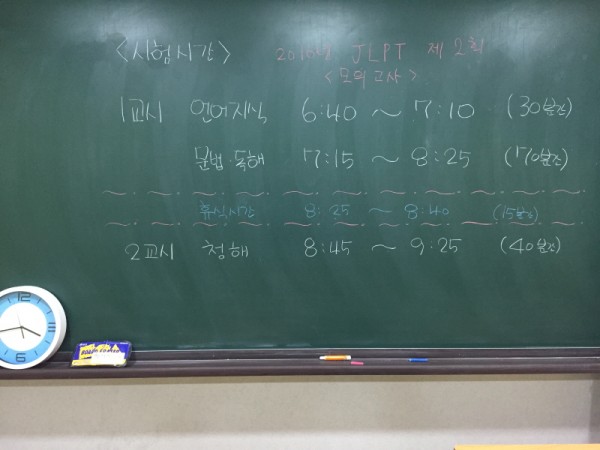 <시험시간> 2016년 JLPT 제 2회
<모의고사>
1교시 언어지식 6:40 ~ 7:10 (30분간)
문법·독해 7:15 ~ 8:25 (70분간)
휴식시간 8:25 ~ 8:40 (15분간)
2교시 청해 8:45 ~ 9:25 (40분간)
12